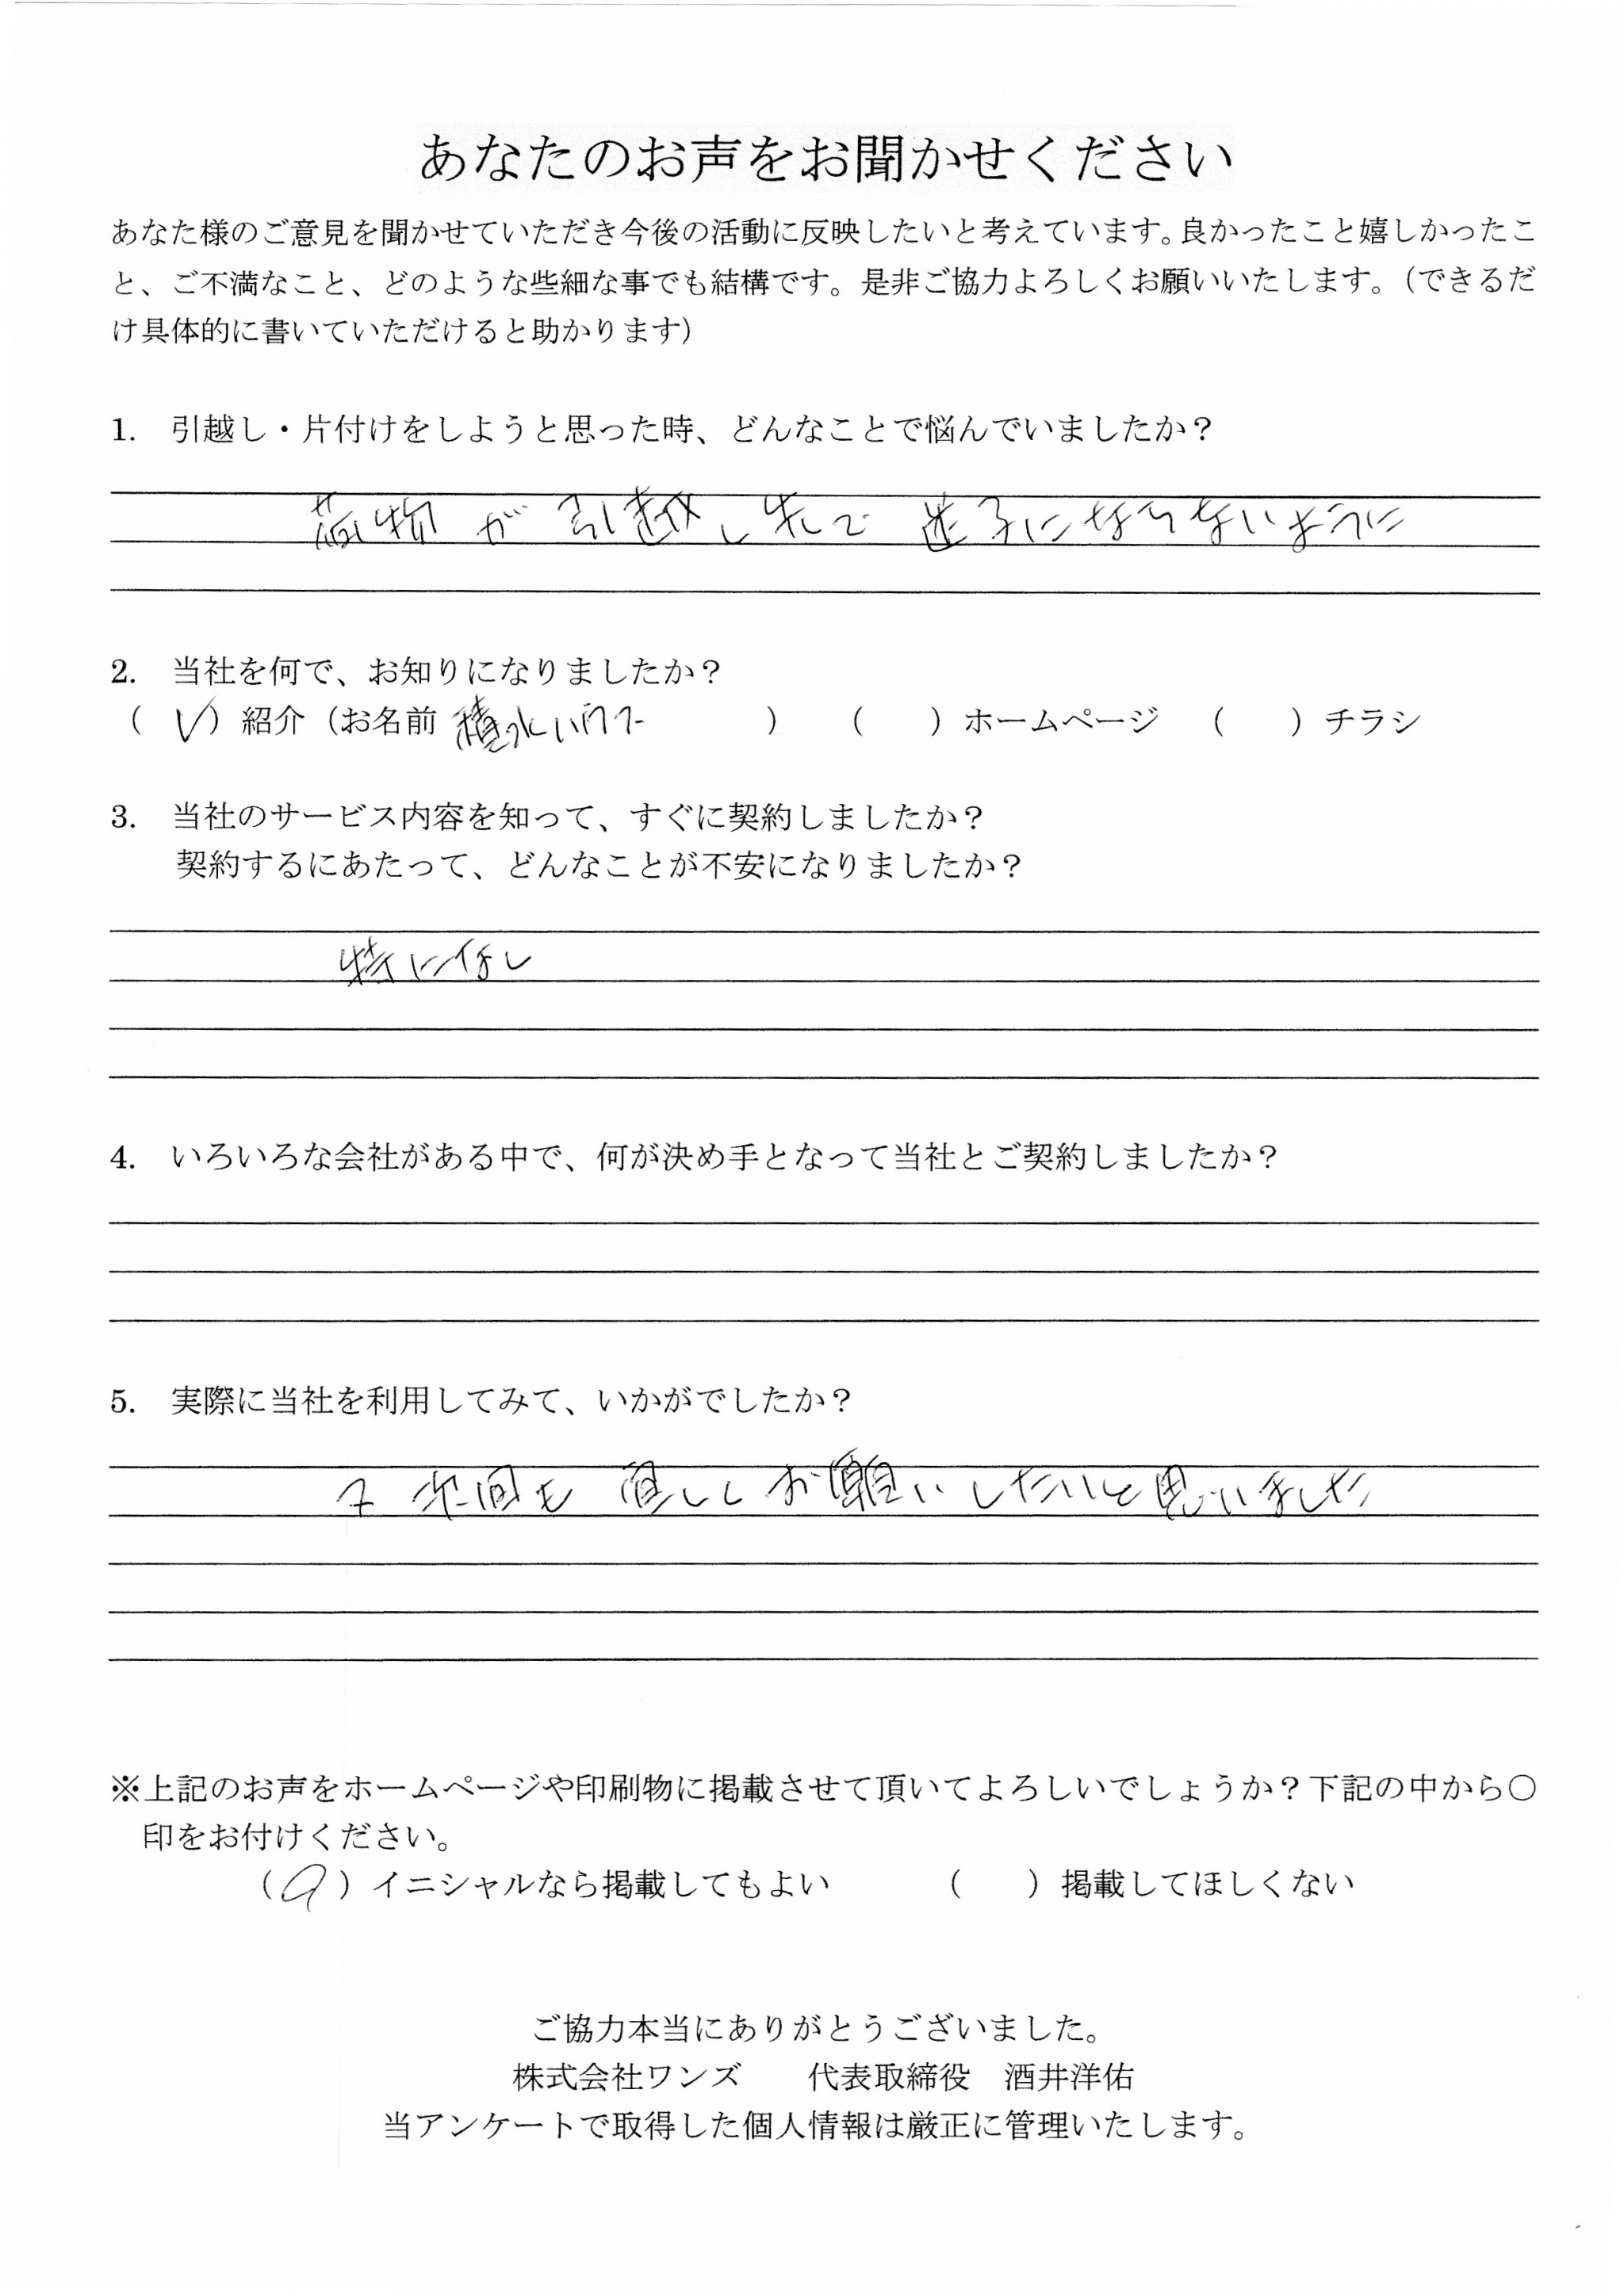 あなたのお声をお聞かせください
あなた様のご意見を聞かせていただき今後の活動に反映したいと考えています。良かったこと嬉しかったこ
と、ご不満なこと、どのような些細な事でも結構です。是非ご協力よろしくお願いいたします。（できるだ
け具体的に書いていただけると助かります）
1. 引越し・片付けをしようと思った時、どんなことで悩んでいましたか？
荷物が引越し先で迷子にならないように
2. 当社を何で、お知りになりましたか？
（レ）紹介（お名前 積水ハウス ） （ ）ホームページ （ ）チラシ
3. 当社のサービス内容を知って、すぐに契約しましたか？
契約するにあたって、どんなことが不安になりましたか？
特になし
4. いろいろな会社がある中で、何が決め手となって当社とご契約しましたか？
5. 実際に当社を利用してみて、いかがでしたか？
次回も宜しくお願いしたいと思いました
※上記のお声をホームページや印刷物に掲載させて頂いてよろしいでしょうか？下記の中から〇
印をお付けください。
（〇）イニシャルなら掲載してもよい （ ）掲載してほしくない
ご協力本当にありがとうございました。
株式会社ワンズ 代表取締役 酒井洋佑
当アンケートで取得した個人情報は厳正に管理いたします。